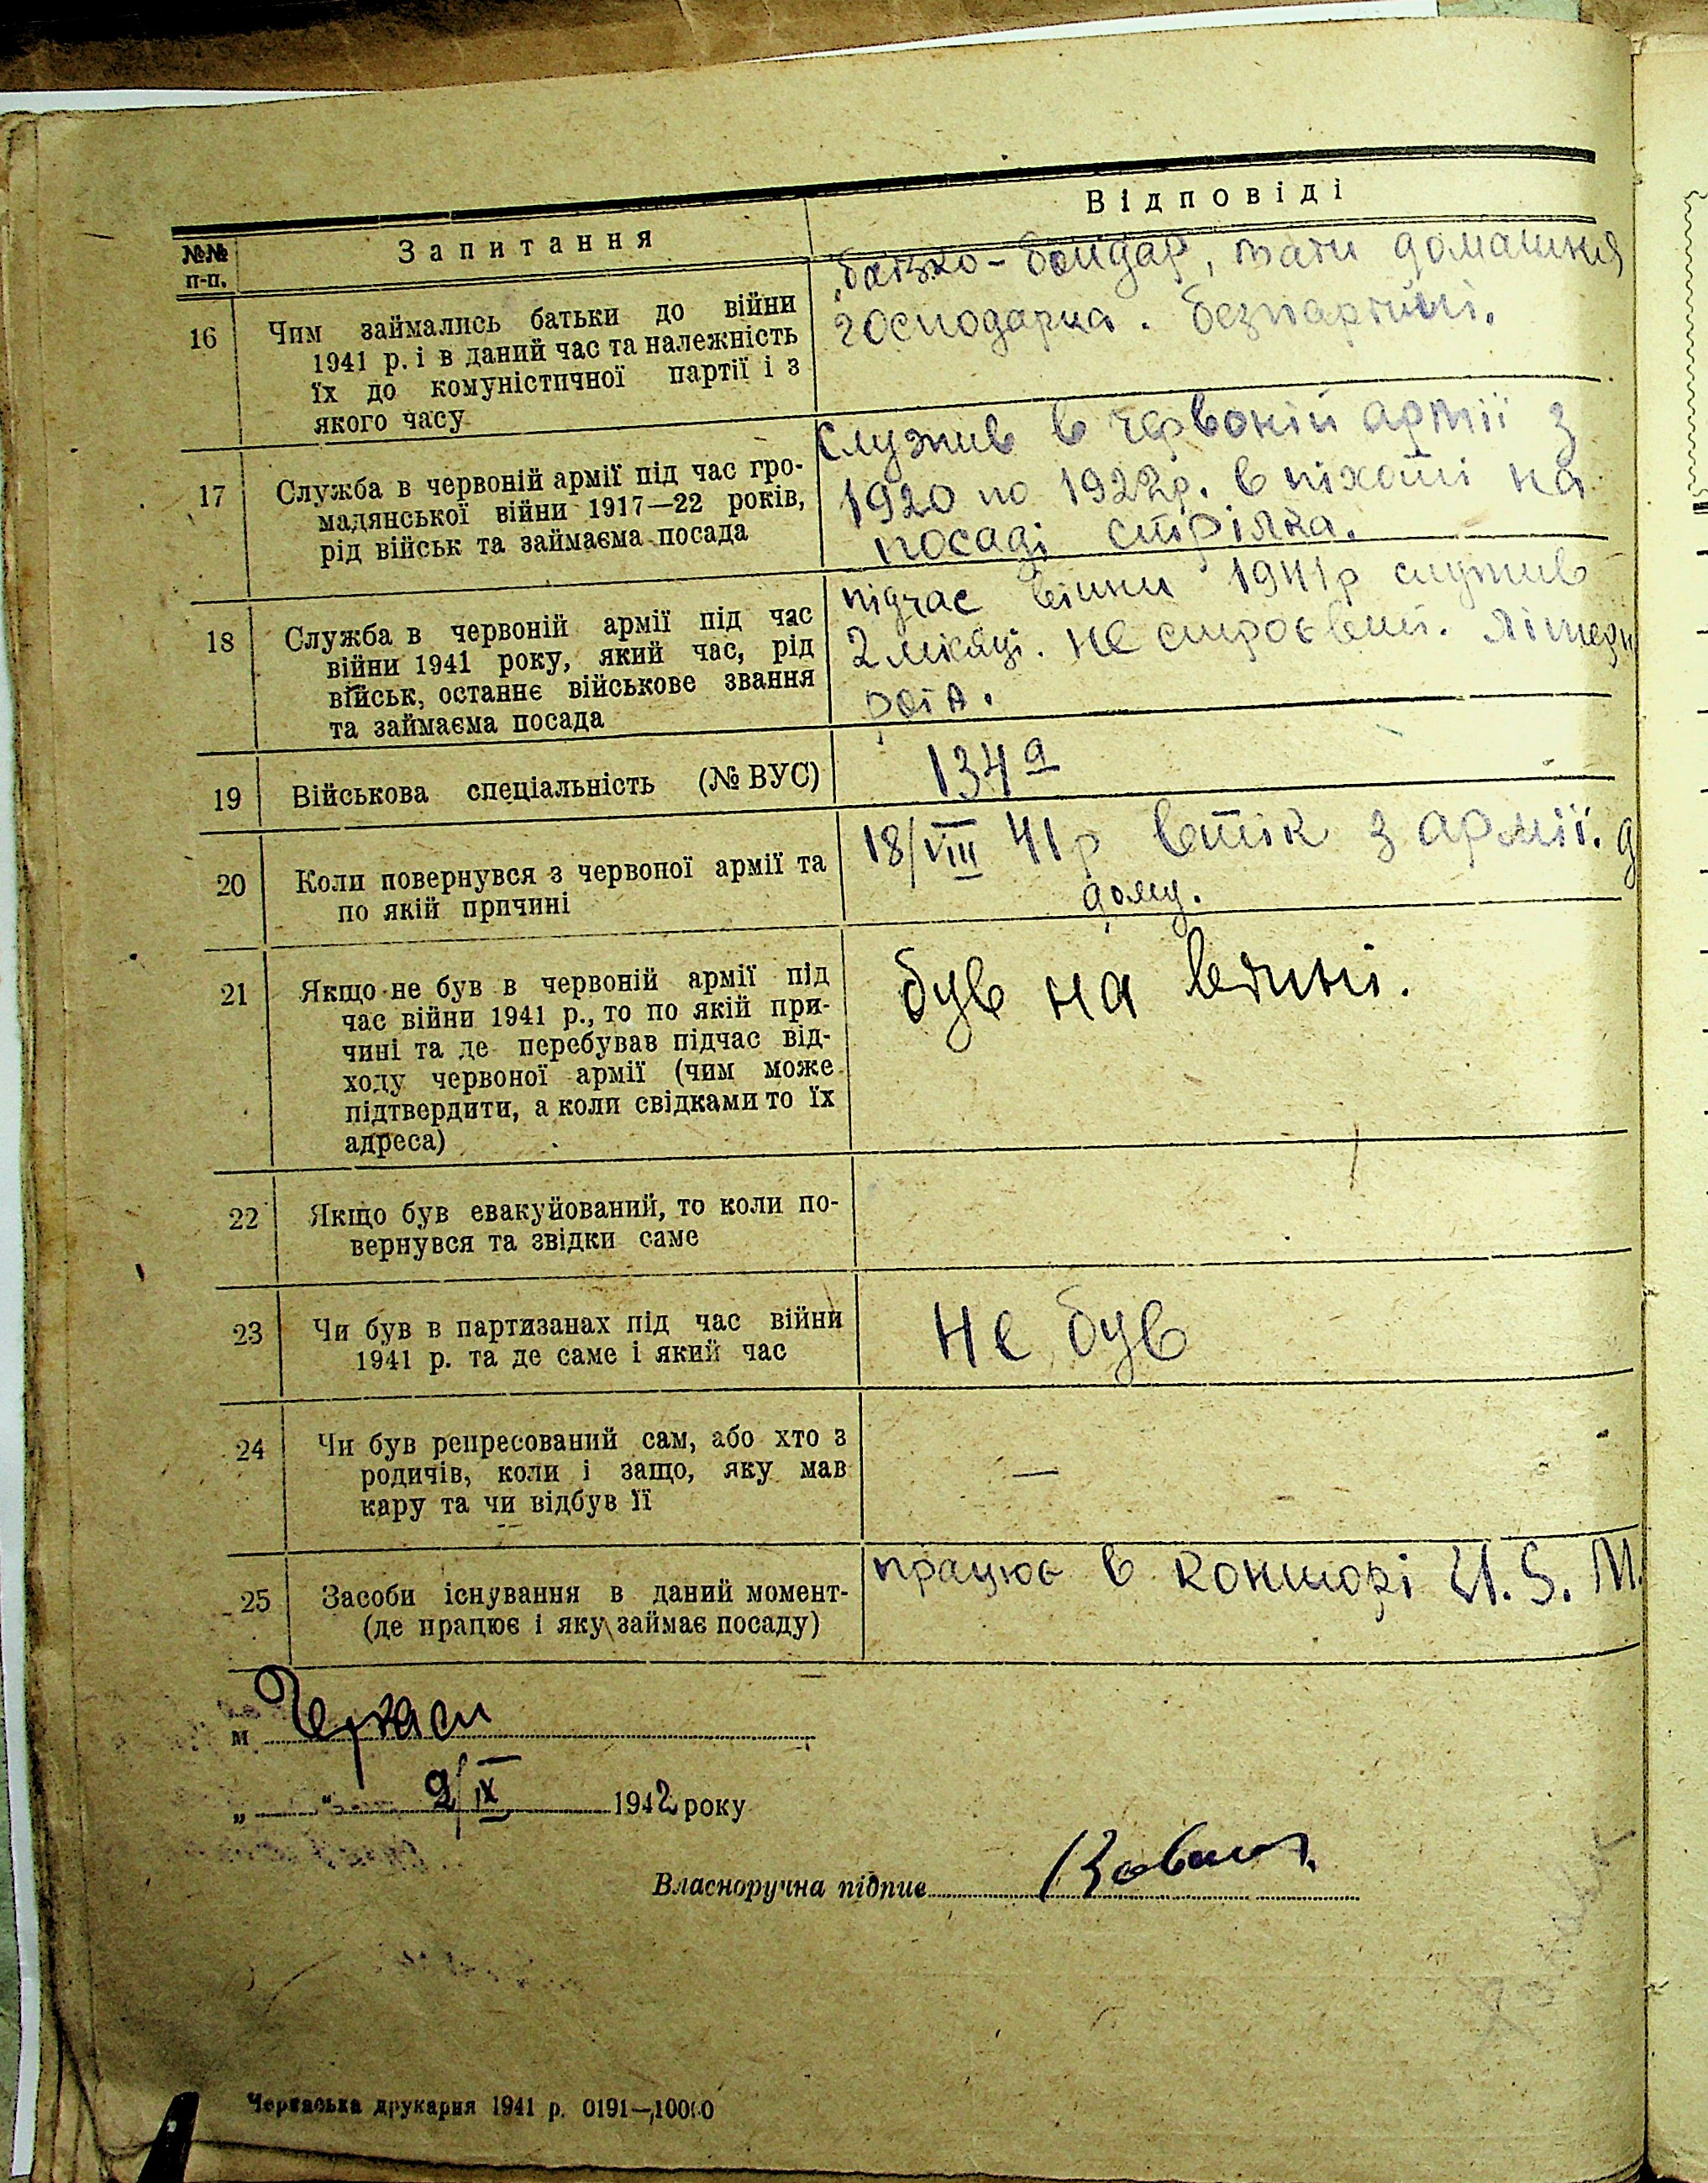 Відповіді
№№ Запитання
п-п.
батько - бондар, мати домашня
господарка. безпартійні.
16 Чим займались батьки до війни
1941 р. і в даний час та належність
їх до комуністичної партії і з
якого часу
служив в червоній армії з
1920 по 1922р. в піхоті на
посаді стрілка.
17 Служба в червоній армії під час гро-
мадянської війни 1917—22 років,
рід військ та займаєма посада
підчас війни 1941р служив
2 місяці. не строєвий.
18 Служба в червоній армії під час
війни 1941 року, який час, рід
військ, останнє військове звання
та займаєма посада
134а
19 Військова спеціальність (№ ВУС)
18/VIII 41р втік з армії. д
дому.
20 Коли повернувся з червоної армії та
по якій причині
був на війні.
21 Якщо не був в червоній армії під
час війни 1941 р., то по якій при-
чині та де перебував підчас від-
ходу червоної армії (чим може
підтвердити, а коли свідками то їх
адреса)
22 Якщо був евакуйований, то коли по-
вернувся та звідки саме
23 Чи був в партизанах під час війни
1941 р. та де саме і який час
Не був
24 Чи був репресований сам, або хто з
родичів, коли і защо, яку мав
кару та чи відбув її
—
працює в конторі
25 Засоби існування в даний момент-
(де працює і яку займає посаду)
м Черкаси
„ “ 2/IX 1942 року
Власноручна підпис
Черкаська друкарня 1941 р. 0191—10000